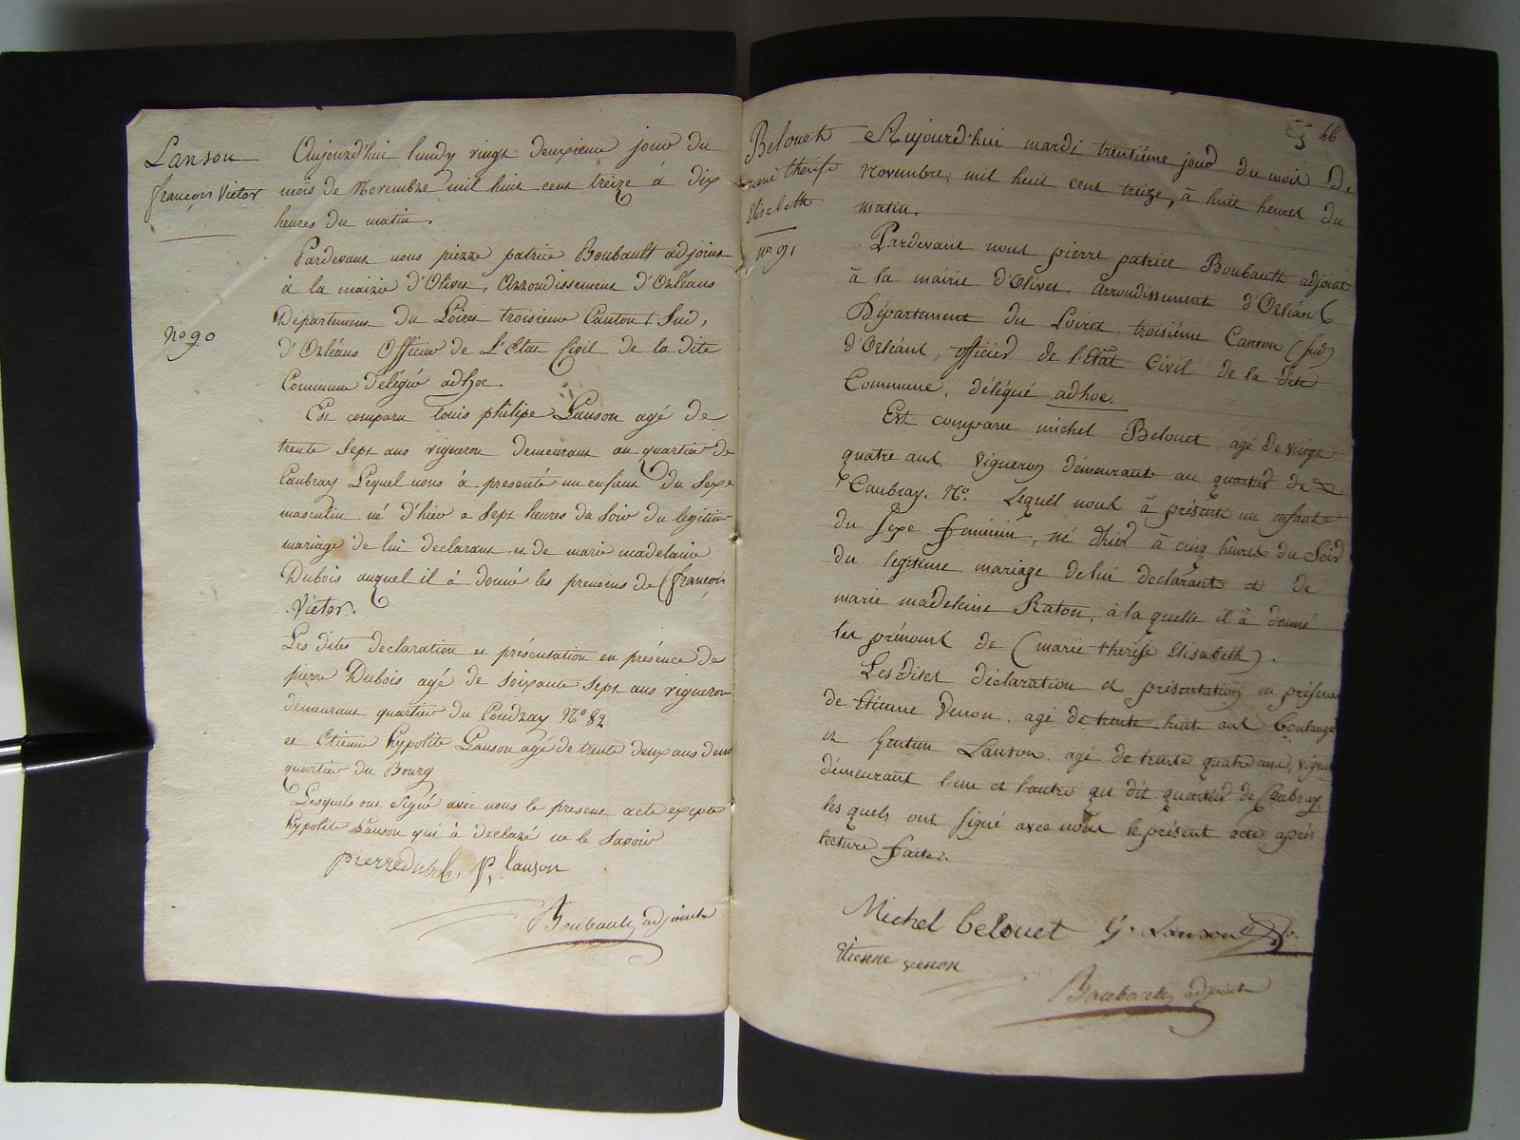 Lanson
françois Victor
N° 90
Aujourd'hui lundy vingt deuxieme jour du
mois de Novembre mil huit cent treize à dix
heures du matin.
Pardevant nous pierre patrice Boubault adjoint
à la mairie d'Olivet, Arrondissement d'Orléans
Departement du Loiret troisieme Canton (Sud,
d'Orléans Officier de L'Etat Civil de la dite
Commune délégué adhoc.
Est comparu louis philipe Lanson agé de
trente sept ans vigneron demeurant au quartier de
Caubray Lequel nous à presenté un enfant du Sexe
masculin né d'hier a sept heures du soir du legitime
mariage de lui declarant et de marie madelaine
Dubois auquel il à donné les prenoms de (françois
Victor.
Les dites declaration et présentation en présence de
pierre Dubois agé de soixante sept ans vigneron
demeurant quartier du Coudray N° 82
et Etienne hypolite Lanson agé de trente deux ans dem
quartier du Bourg
Lesquels ont signé avec nous le present acte excepté
hypolite Lanson qui à declaré ne le savoir
pierre dubois, P, lanson
Boubault adjoint
66
Belouet
marie therese
Elisabeth
N° 91
Aujourd'hui mardi trentiéme jour du mois de
Novembre, mil huit cent treize, à huit heures du
matin.
Pardevant nous pierre patrice Boubault adjoint
à la mairie d'Olivet, arrondissement d'Orléans
Département du Loiret troisiéme Canton (sud)
d'Orléans, officier de l'Etat Civil de la dite
Commune, délégué adhoc.
Est comparu michel Belouet agé de vingt
quatre ans, Vigneron démeurant au quartier de
Caubray. N°. Lequel nous à présenté un enfant
du sexe feminin, né d'hier à cinq heures du Soir
du legitime mariage de lui declarant et de
marie madeleine Raton, à la quelle il à donné
les prénoms de (marie therése Elisabeth).
Les dites déclaration et présentation en présence
de Etienne Venon agé de trente huit ans boulanger
et Lanson agé de trente quatre ans, vigne
démeurant l'un et l'autre au dit quartier de Caubray
lesquels ont signé avec nous le présent acte après
lecture faite.
Michel belouet G. Lanson
Etienne venon
Boubault adjoint